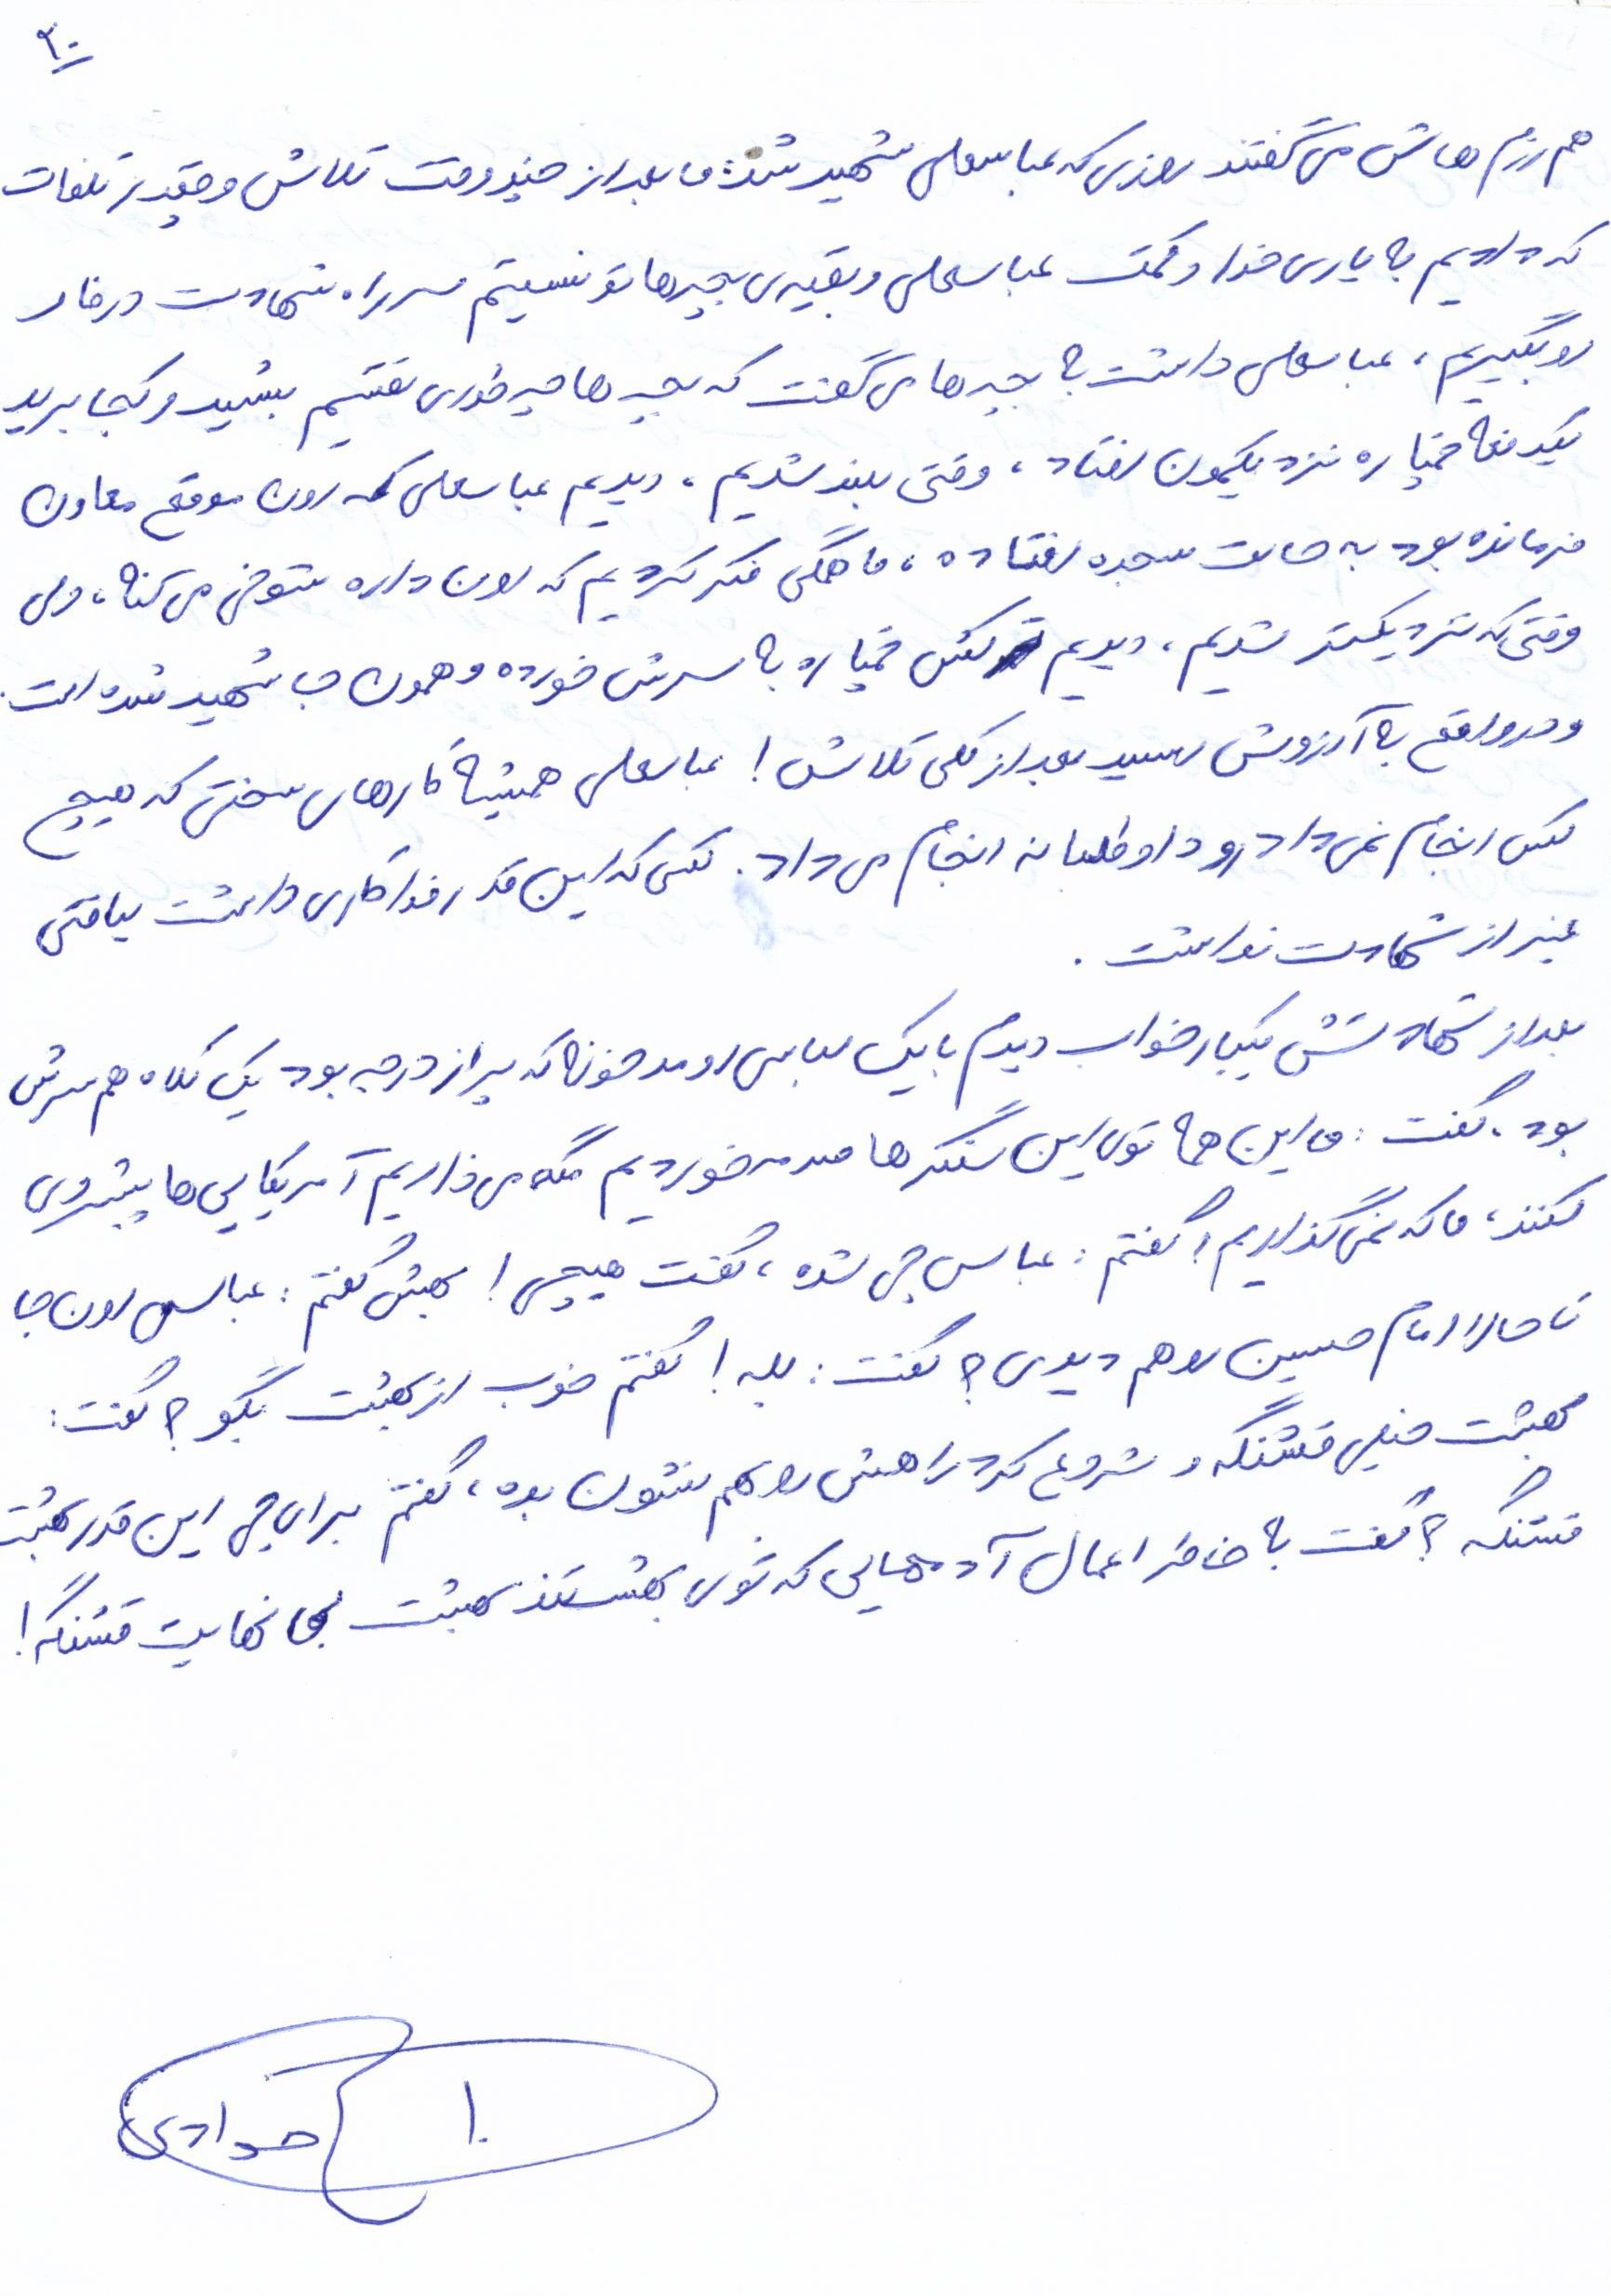 ۲۰
هم رزم هاش می گفتند روزی که عباسعلی شهید شد: ما بعد از چند وقت تلاش و چقدر تلفات
که دادیم با یاری خدا و کمک عباسعلی و بقیه ی بچه ها تونستیم سر راه شهادت در فاو
رو بگیریم، عباسعلی داشت با بچه ها می گفت که بچه ها چه جوری تقسیم بشید و کجا برید
یکدفعه خمپاره نزدیکمون افتاد، وقتی بلند شدیم، دیدیم عباسعلی که اون موقع معاون
فرمانده بود به حالت سجده افتاده، ما همگی فکر کردیم که اون داره شوخی می کنه، ولی
وقتی که نزدیکتر شدیم، دیدیم ترکش خمپاره به سرش خورده و همون جا شهید شده است.
و در واقع به آرزوش رسید بعد از کلی تلاش! عباسعلی همیشه کارهای سختی که هیچ
کس انجام نمی داد رو داوطلبانه انجام می داد. کسی که این قدر فداکاری داشت لیاقتی
غیر از شهادت نداشت.
بعد از شهادتش یکبار خواب دیدم با یک لباسی اومد خونه که پر از درجه بود یک کلاه هم سرش
بود. گفت: ما این همه توی این سنگرها صدمه خوردیم مگه می ذاریم آمریکایی ها پیشروی
کنند، ما که نمی گذاریم! گفتم: عباس چی شده، گفت هیچی! بهش گفتم: عباس اون جا
تا حالا امام حسین رو هم دیدی؟ گفت: بله! گفتم خوب از بهشت بگو؟ گفت:
بهشت خیلی قشنگه و شروع کرد راهش رو هم نشون بده، گفتم برای چی این قدر بهشت
قشنگه؟ گفت به خاطر اعمال آدمهایی که توی بهشتند بهشت بی نهایت قشنگه!
جوادی